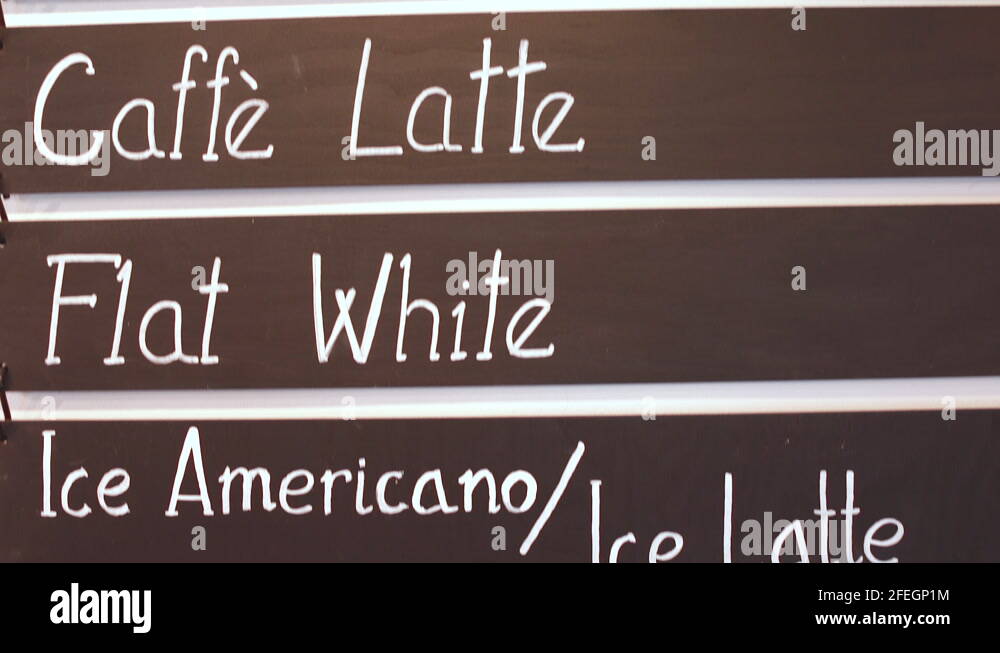 Caffè Latte
Flat White
Ice Americano/Ice Latte
alamy
Image ID: 2FEGP1M
www.alamy.com